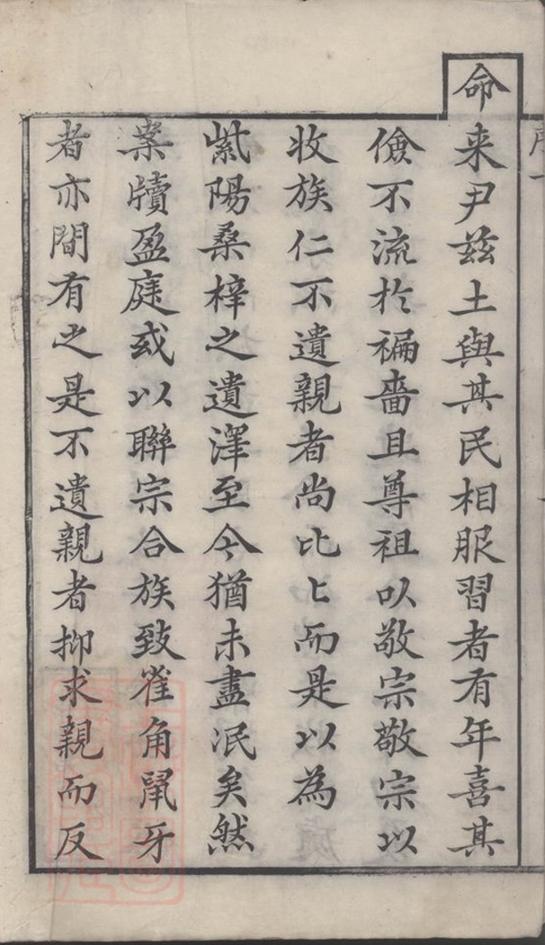 命来尹兹土與其民相服習者有年喜其
儉不流於褊嗇且尊祖以敬宗敬宗以
收族仁不遺親者尚比匕而是以為
紫陽桑梓之遺澤至今猶未盡泯矣然
案牘盈庭或以聯宗合族致雀角鼠牙
者亦間有之是不遺親者抑求親而反